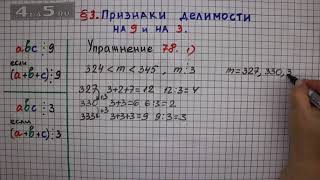 4 на 5
§3. Признаки делимости
на 9 и на 3.
abc ⋮ 9
если
(a+b+c) ⋮ 9
abc ⋮ 3
если
(a+b+c) ⋮ 3
Упражнение 78. 1)
324 < m < 345 , m ⋮ 3 m = 327, 330, 3
327 3+2+7=12 12:3=4
330 +3 3+3=6 6:3=2
333 +3 3+3+3=9 9:3=3